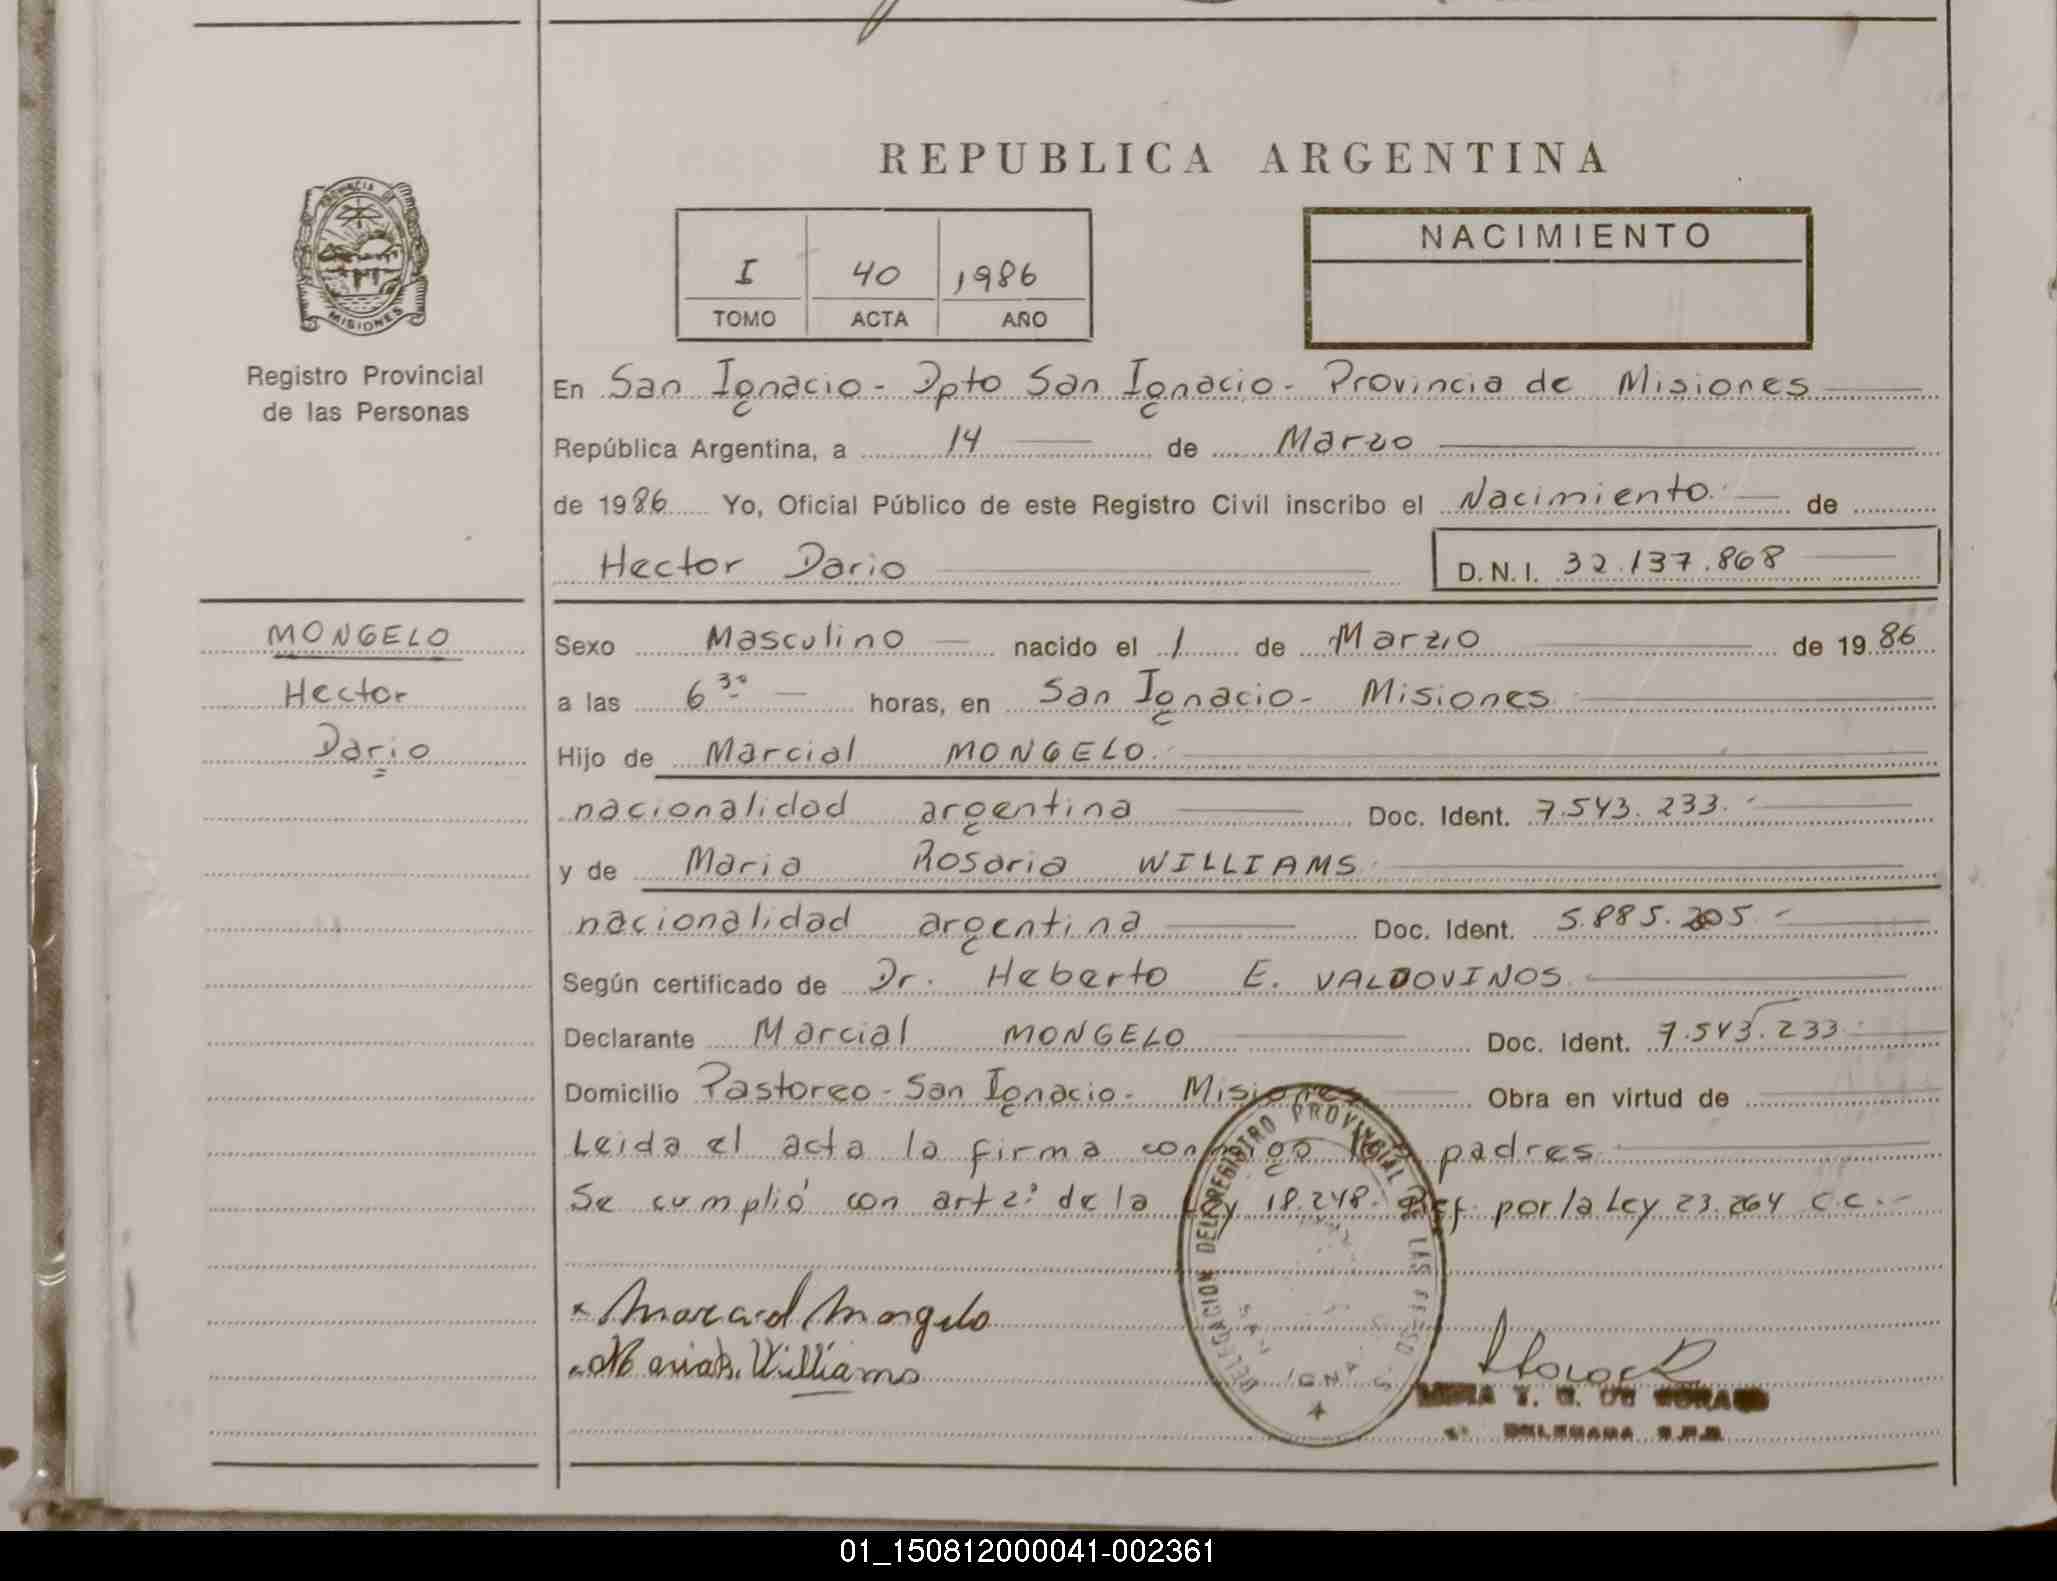 REPUBLICA ARGENTINA
PROVINCIA DE
MISIONES
Registro Provincial
de las Personas
I 40 1986
TOMO ACTA AÑO
NACIMIENTO
En San Ignacio - Dpto San Ignacio - Provincia de Misiones
República Argentina, a 14 de Marzo
de 1986 Yo, Oficial Público de este Registro Civil inscribo el Nacimiento de
Hector Dario D.N.I. 32.137.868
MONGELO
Hector
Dario
Sexo Masculino nacido el 1 de Marzo de 1986
a las 6 30 horas, en San Ignacio - Misiones
Hijo de Marcial MONGELO
nacionalidad argentina Doc. Ident. 7.543.233.-
y de Maria Rosaria WILLIAMS
nacionalidad argentina Doc. Ident. 5.885.205 -
Según certificado de Dr. Heberto E. VALDOVINOS
Declarante Marcial MONGELO Doc. Ident. 7.543.233
Domicilio Pastoreo - San Ignacio - Misiones Obra en virtud de
Leida el acta la firma conmigo los padres
Se cumplió con art 2º de la Ley 18.248. Ref. por la Ley 23.264 C.C.-
DELEGACION DEL REGISTRO PROVINCIAL DE LAS
Marcial Mongelo
Maria R. Williams
01_150812000041-002361